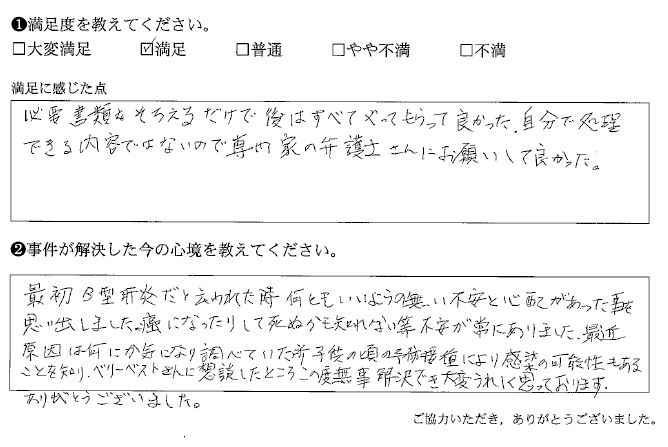 ❶満足度を教えてください。
□大変満足 ☑満足 □普通 □やや不満 □不満
満足に感じた点
必要書類をそろえるだけで後はすべてやってもらって良かった。自分で処理
できる内容ではないので専門家の弁護士さんにお願いして良かった。
❷事件が解決した今の心境を教えてください。
最初B型肝炎だと云われた時何ともいいようの無い不安と心配があった事を
思い出しました。癌になったりして死ぬかも知れない等不安が常にありました、最近
原因は何にか気になり調べていた所子供の頃の予防接種により感染の可能性もある
ことを知り、ベリーベストさんに想談したところこの度無事解決でき大変うれしく思っております。
ありがとうございました。
ご協力いただき，ありがとうございました。